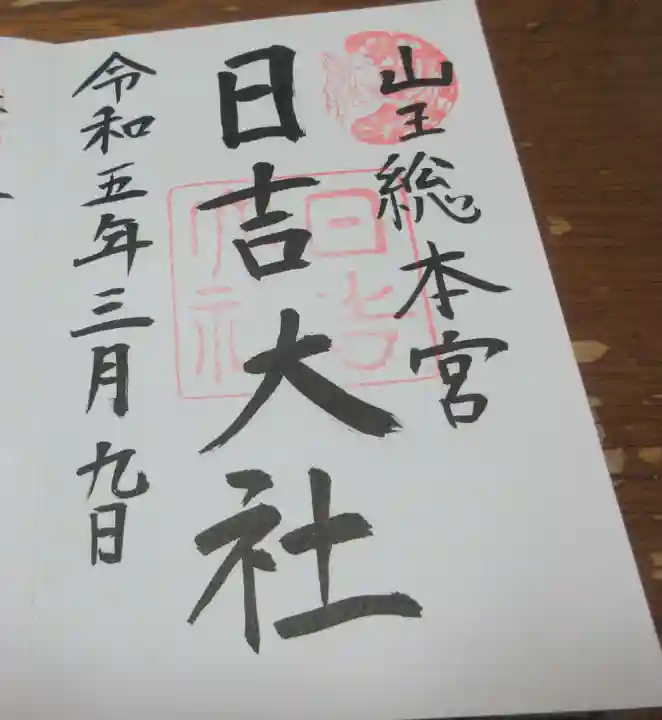 山王総本宮
日吉大社
令和五年三月九日
日吉
大社